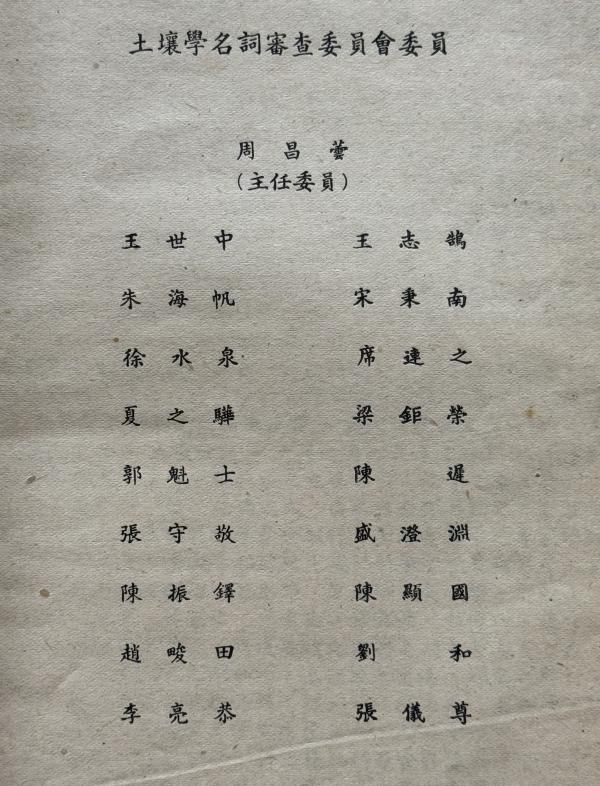 土壤學名詞審查委員會委員
周昌蕓
(主任委員)
王世中 王志鵠
朱海帆 宋秉南
徐水泉 席連之
夏之驊 梁鉅榮
郭魁士 陳遲
張守敬 盛澄淵
陳振鐸 陳顯國
趙畯田 劉和
李亮恭 張儀尊